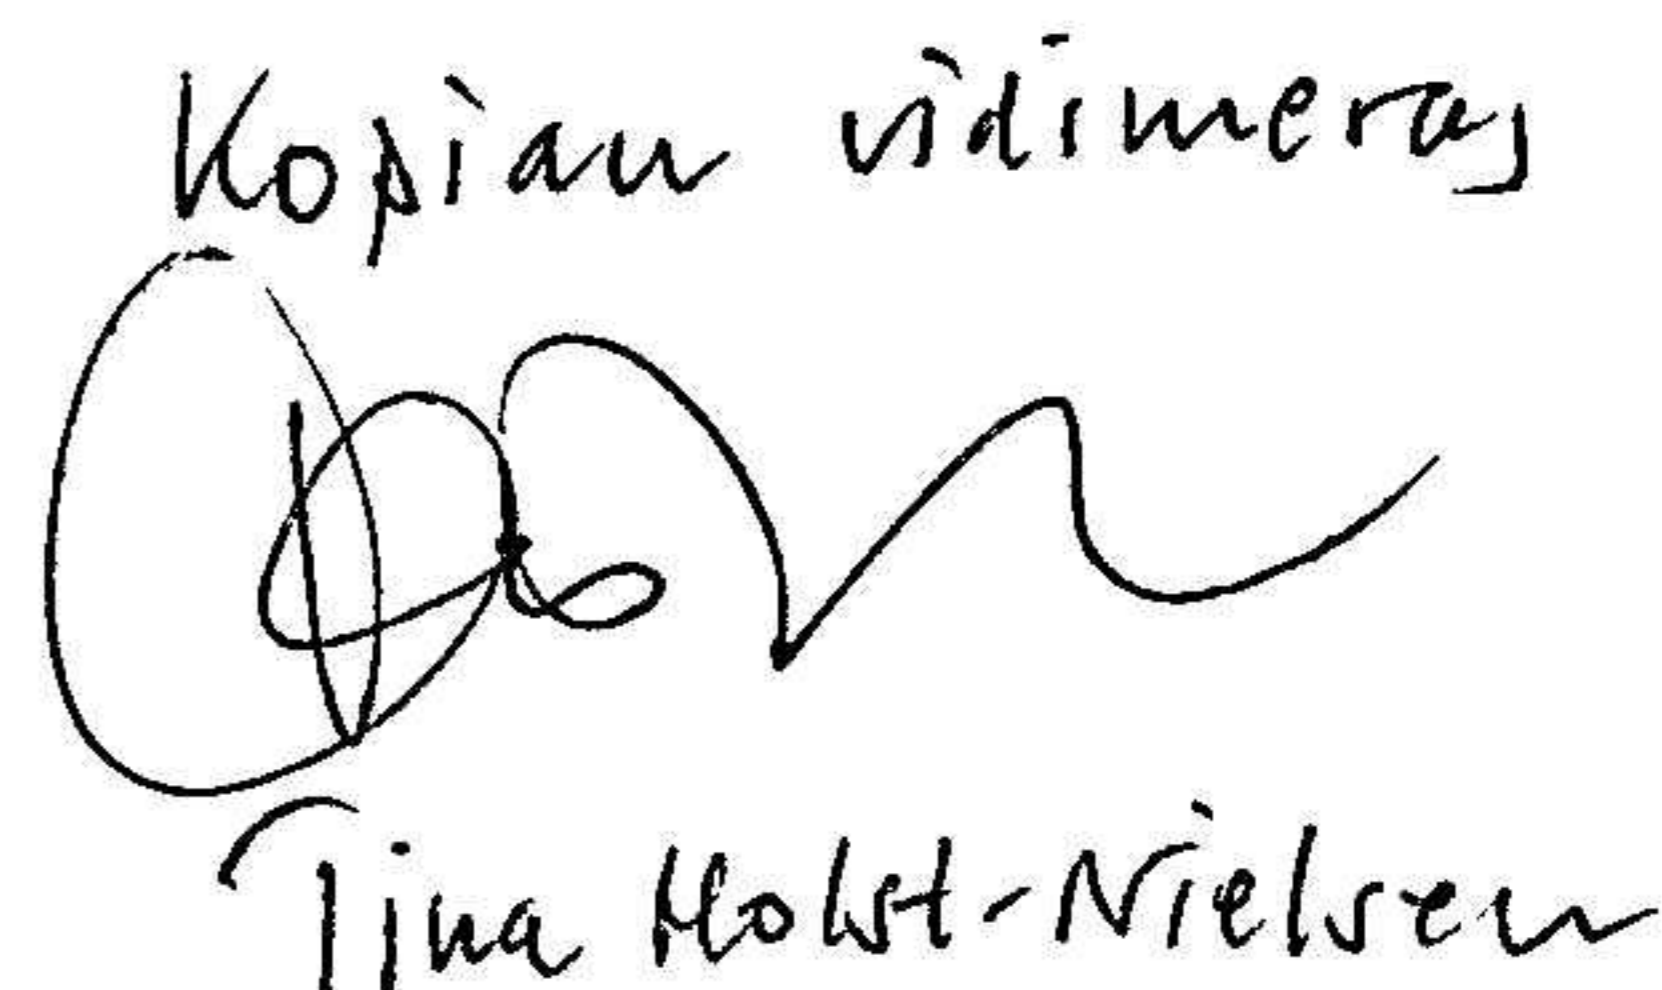 Kopian vidimeras
Tina Holst-Nielsen